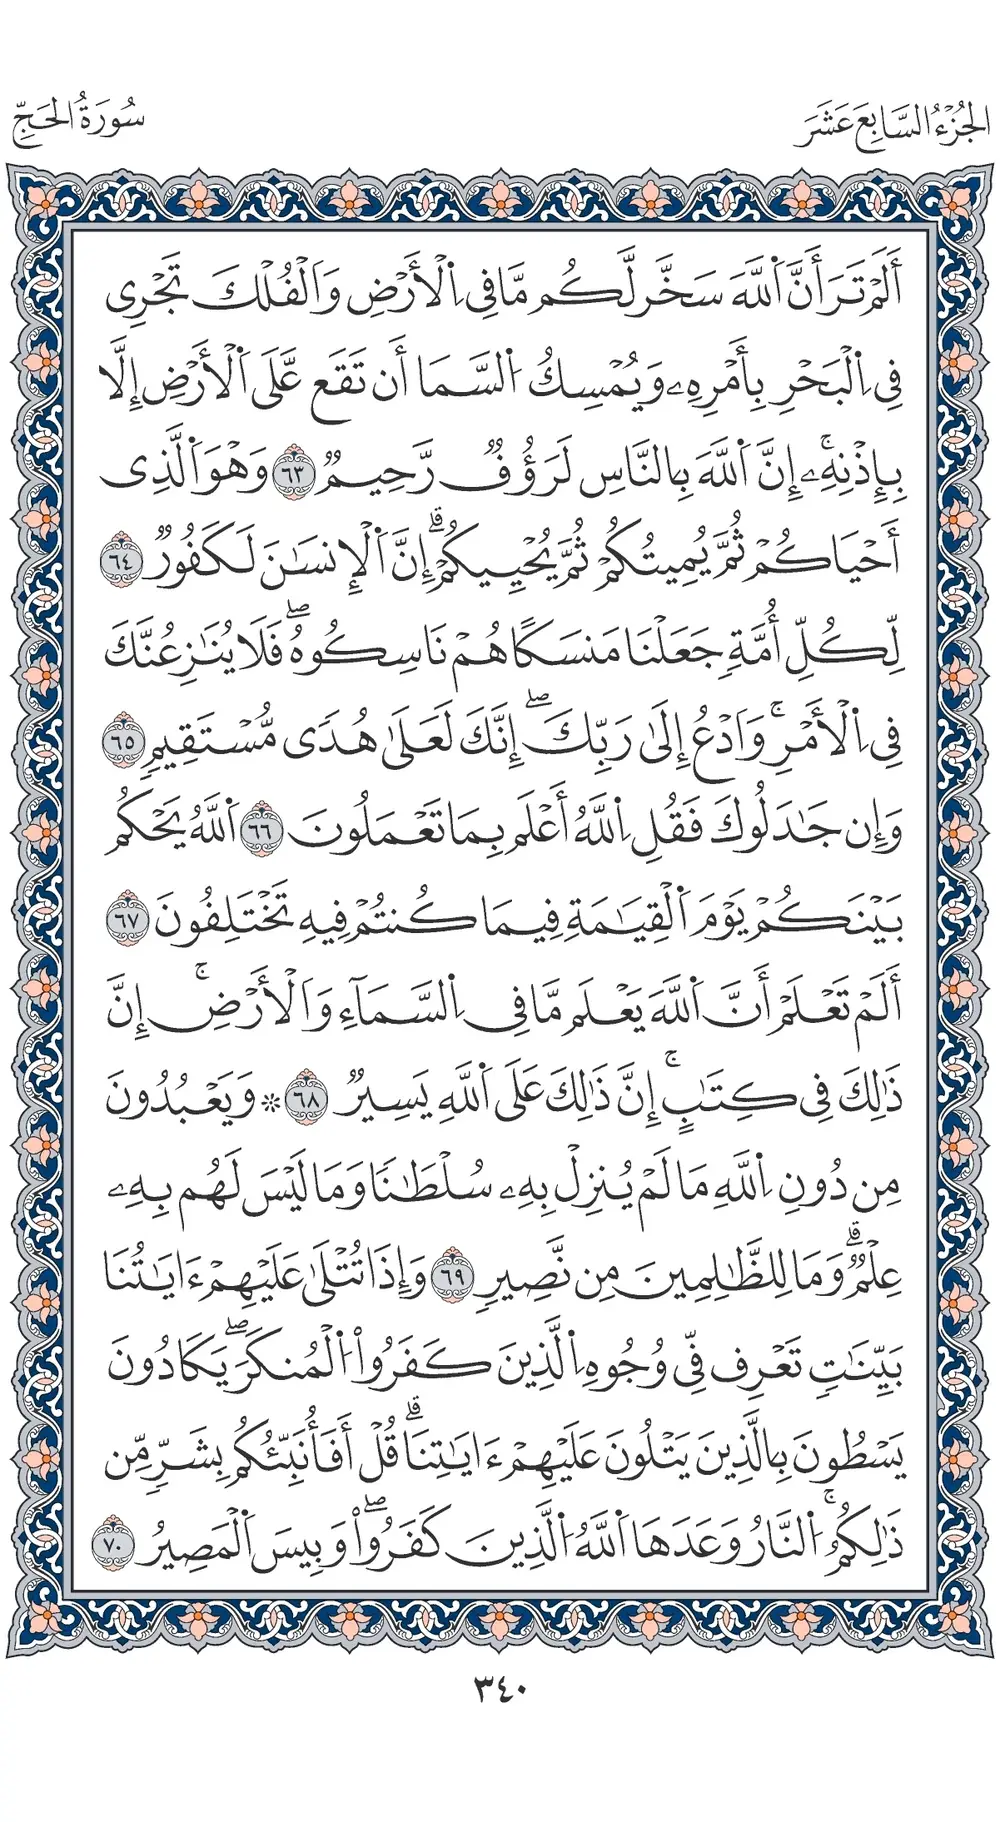 الجُزْءُ السَّابِعَ عَشَرَ
سُورَةُ الحَجِّ
أَلَمْ تَرَ أَنَّ اَ۬للَّهَ سَخَّر لَّكُم مَّا فِي اِ۬لْأَرْضِ وَاَلْفُلْكَ تَجْرِي
فِي اِ۬لْبَحْرِ بِأَمْرِهِۦ وَيُمْسِكُ اُ۬لسَّمَا أَن تَقَع عَّلَى اَ۬لْأَرْضِ إِلَّا
بِإِذْنِهِۦٓۚ إِنَّ اَ۬للَّهَ بِالنَّاسِ لَرَؤُفٞ رَّحِيمٞ ٦٣ وَهْوَ اَلَّذِي
أَحْيَاكُمْ ثُمَّ يُمِيتُكُمْ ثُمَّ يُحْيِيكُمْۗ إِنَّ اَ۬لْإِنسَٰنَ لَكَفُورٞ ٦٤
لِّكُلِّ أُمَّةٖ جَعَلْنَا مَنسَكًا هُمْ نَاسِكُوهُۖ فَلَا يُنَٰزِعُنَّكَ
فِي اِ۬لْأَمْرِۚ وَاَدْعُ إِلَىٰ رَبِّكَۖ إِنَّكَ لَعَلَىٰ هُدٗى مُّسْتَقِيمٖ ٦٥
وَإِن جَٰدَلُوكَ فَقُلِ اِ۬للَّهُ أَعْلَم بِمَا تَعْمَلُونَ ٦٦ اَ۬للَّهُ يَحْكُم
بَيْنَكُمْ يَوْمَ اَ۬لْقِيَٰمَةِ فِيمَا كُنتُمْ فِيهِ تَخْتَلِفُونَ ٦٧
أَلَمْ تَعْلَمْ أَنَّ اَ۬للَّهَ يَعْلَم مَّا فِي اِ۬لسَّمَآءِ وَالْأَرْضِۚ إِنَّ
ذَٰلِكَ فِي كِتَٰبٍۚ إِنَّ ذَٰلِكَ عَلَى اَ۬للَّهِ يَسِيرٞ ٦٨ * وَيَعْبُدُونَ
مِن دُونِ اِ۬للَّهِ مَا لَمْ يُنزِلْ بِهِۦ سُلْطَٰنٗا وَمَا لَيْسَ لَهُم بِهِۦ
عِلْمٞۗ وَمَا لِلظَّٰلِمِينَ مِن نَّصِيرٖ ٦٩ وَإِذَا تُتْلَىٰ عَلَيْهِمْ ءَايَٰتُنَا
بَيِّنَٰتٖ تَعْرِف فِّي وُجُوهِ اِ۬لَّذِينَ كَفَرُواْ اُ۬لْمُنكَرَۖ يَكَادُونَ
يَسْطُونَ بِالَّذِينَ يَتْلُونَ عَلَيْهِمْ ءَايَٰتِنَاۗ قُلْ أَفَأُنَبِّئُكُم بِشَرّٖ مِّن
ذَٰلِكُمُۚ اُ۬لنَّارُ وَعَدَهَا اَ۬للَّهُ اُ۬لَّذِينَ كَفَرُواْۖ وَبِيسَ اَ۬لْمَصِيرُ ٧٠
٣٤٠